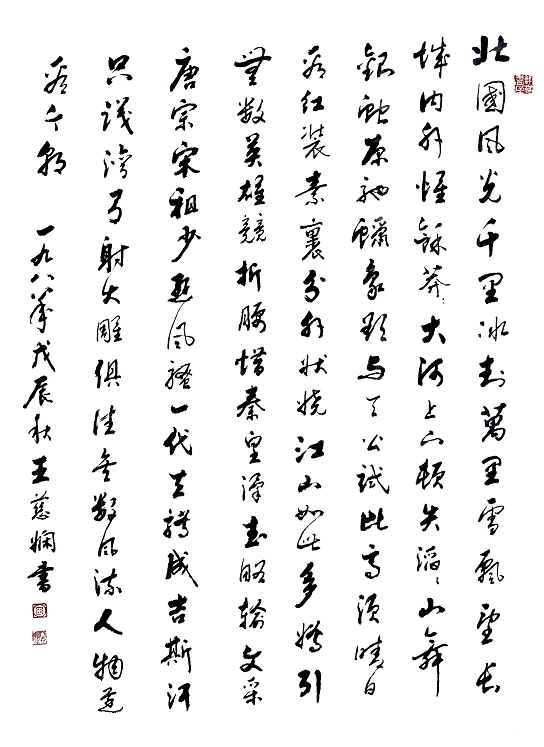 北國風光千里冰封萬里雪飄望長
城内外惟餘莽〻大河上下頓失滔〻山舞
銀蛇原馳蠟象欲與天公試比高須晴日
看紅裝素裹分外妖嬈江山如此多嬌引
無數英雄競折腰惜秦皇漢武略輸文采
唐宗宋祖少遜風騷一代天驕成吉斯汗
只識彎弓射大雕俱往矣數風流人物還
看今朝 一九八八年戊辰秋王慈嫻書